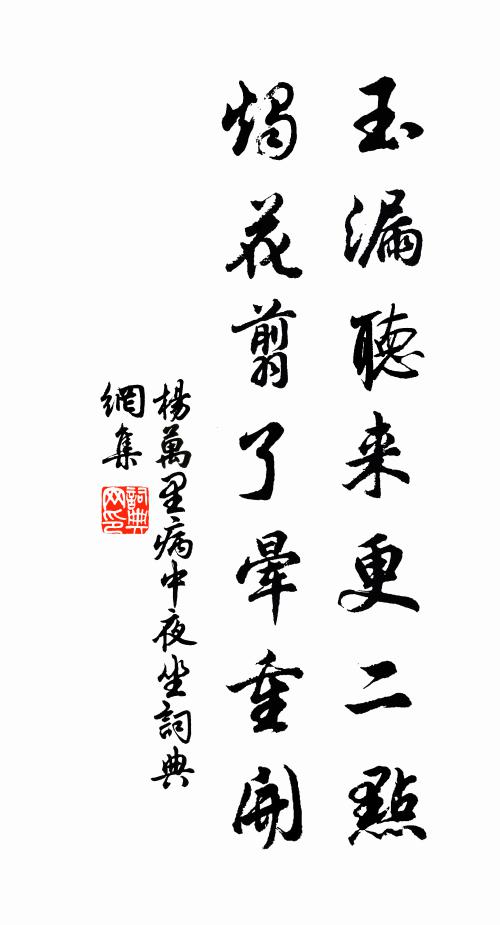 玉漏聽来更二點
燭花剪了暈重開
楊萬里病中夜坐詞典
網集
詞典
网印